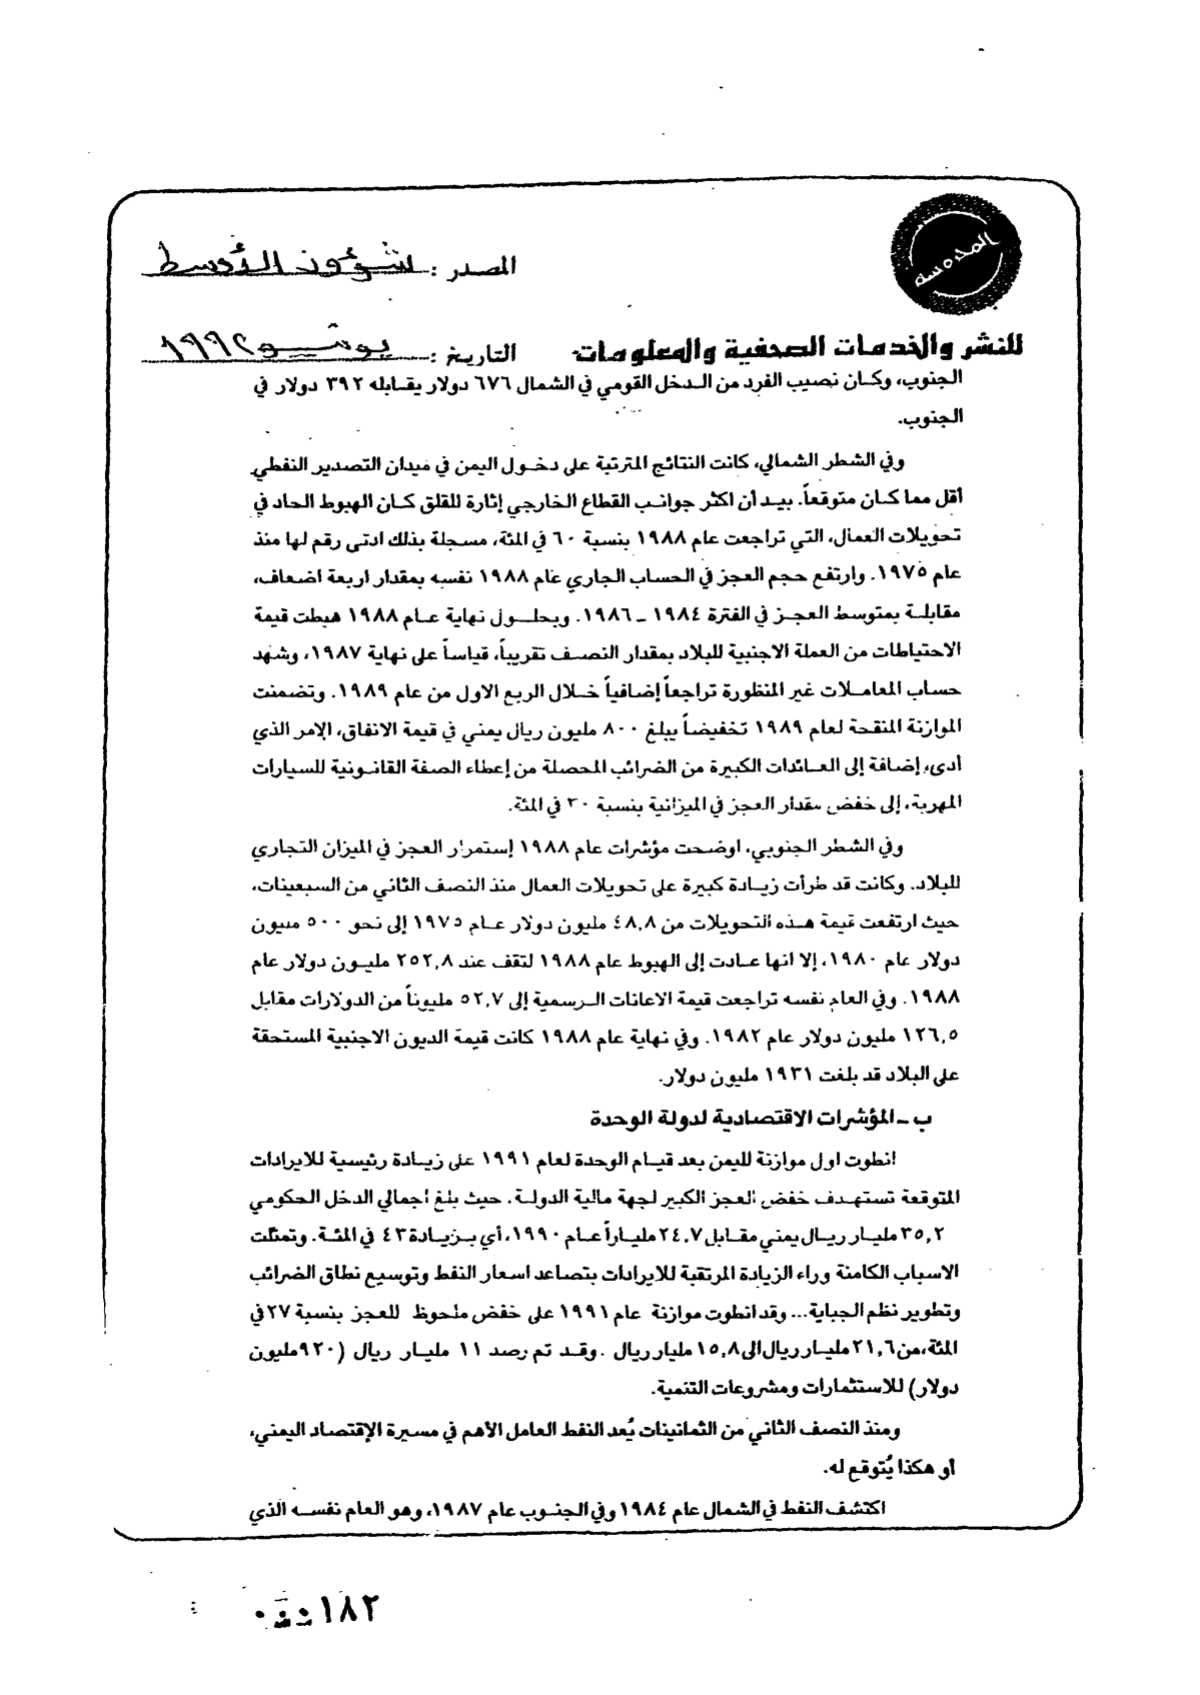 المدوسة
المصدر : شؤون الأوسط
للنشر والخدمات الصحفية والمعلومات
التاريخ : يونيو ١٩٩٢
الجنوب، وكان نصيب الفرد من الدخل القومي في الشمال ٦٧٦ دولار يقابله ٣٩٢ دولار في
الجنوب.
وفي الشطر الشمالي، كانت النتائج المترتبة على دخول اليمن في ميدان التصدير النفطي
أقل مما كان متوقعاً. بيد أن اكثر جوانب القطاع الخارجي إثارة للقلق كان الهبوط الحاد في
تحويلات العمال، التي تراجعت عام ١٩٨٨ بنسبة ٦٠ في المئة، مسجلة بذلك ادنى رقم لها منذ
عام ١٩٧٥. وارتفع حجم العجز في الحساب الجاري عام ١٩٨٨ نفسه بمقدار اربعة اضعاف،
مقابلة بمتوسط العجز في الفترة ١٩٨٤ - ١٩٨٦. وبحلول نهاية عام ١٩٨٨ هبطت قيمة
الاحتياطات من العملة الاجنبية للبلاد بمقدار النصف تقريباً، قياساً على نهاية ١٩٨٧، وشهد
حساب المعاملات غير المنظورة تراجعاً إضافياً خلال الربع الاول من عام ١٩٨٩. وتضمنت
الموازنة المنقحة لعام ١٩٨٩ تخفيضاً يبلغ ٨٠٠ مليون ريال يمني في قيمة الانفاق، الامر الذي
أدى، إضافة إلى العائدات الكبيرة من الضرائب المحصلة من إعطاء الصفة القانونية للسيارات
المهربة، إلى خفض مقدار العجز في الميزانية بنسبة ٣٠ في المئة.
وفي الشطر الجنوبي، اوضحت مؤشرات عام ١٩٨٨ إستمرار العجز في الميزان التجاري
للبلاد. وكانت قد طرأت زيادة كبيرة على تحويلات العمال منذ النصف الثاني من السبعينات،
حيث ارتفعت قيمة هذه التحويلات من ٤٨,٨ مليون دولار عام ١٩٧٥ إلى نحو ٥٠٠ مليون
دولار عام ١٩٨٠، إلا انها عادت إلى الهبوط عام ١٩٨٨ لتقف عند ٢٥٢,٨ مليون دولار عام
١٩٨٨. وفي العام نفسه تراجعت قيمة الاعانات الرسمية إلى ٥٢,٧ مليوناً من الدولارات مقابل
١٢٦,٥ مليون دولار عام ١٩٨٢. وفي نهاية عام ١٩٨٨ كانت قيمة الديون الاجنبية المستحقة
على البلاد قد بلغت ١٩٣١ مليون دولار.
ب - المؤشرات الاقتصادية لدولة الوحدة
انطوت اول موازنة لليمن بعد قيام الوحدة لعام ١٩٩١ على زيادة رئيسية للايرادات
المتوقعة تستهدف خفض العجز الكبير لجهة مالية الدولة. حيث بلغ اجمالي الدخل الحكومي
٣٥,٢ مليار ريال يمني مقابل ٢٤,٧ ملياراً عام ١٩٩٠، أي بزيادة ٤٣ في المئة. وتمثلت
الاسباب الكامنة وراء الزيادة المرتقبة للايرادات بتصاعد اسعار النفط وتوسيع نطاق الضرائب
وتطوير نظم الجباية... وقد انطوت موازنة عام ١٩٩١ على خفض ملحوظ للعجز بنسبة ٢٧ في
المئة، من ٢١,٦ مليار ريال الى ١٥,٨ مليار ريال. وقد تم رصد ١١ مليار ريال (٩٢٠ مليون
دولار) للاستثمارات ومشروعات التنمية.
ومنذ النصف الثاني من الثمانينات يُعد النفط العامل الأهم في مسيرة الإقتصاد اليمني،
أو هكذا يُتوقع له.
اكتشف النفط في الشمال عام ١٩٨٤ وفي الجنوب عام ١٩٨٧، وهو العام نفسه الذي
١٨٢